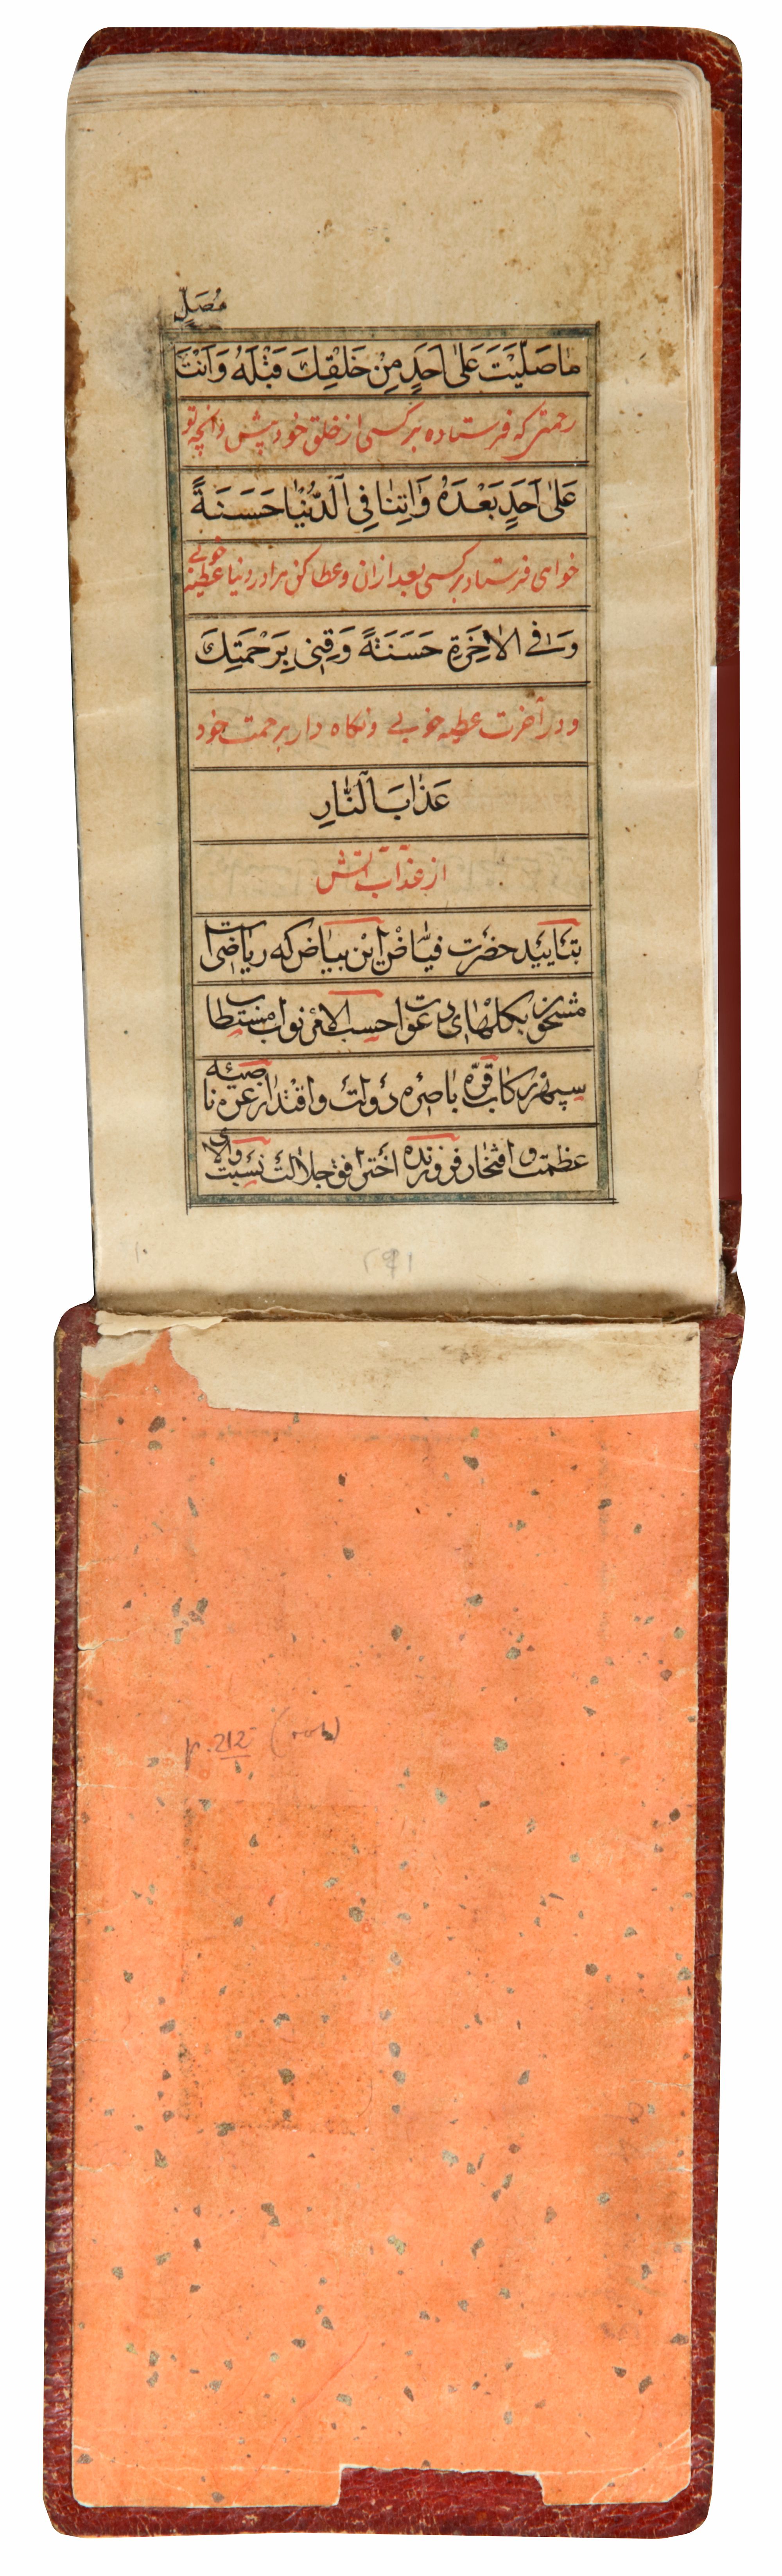 مُصَلٍّ
مٰاصَلَّيْتَ عَلٰى اَحَدٍ مِنْ خَلْقِكَ قَبْلَهُ وَاَنْتَ
رحمتی که فرستاده بر کسی از خلق خود پیش وانچه تو
عَلٰى اَحَدٍ بَعْدَهُ وَاٰتِنٰا فِى الدُّنْيٰا حَسَنَةً
خواهی فرستاد بر کسی بعد ازان و عطا کن مرا در دنیا عطیه خوبی
وَ فِى الْاٰخِرَةِ حَسَنَةً وَقِنٖى بِرَحْمَتِكَ
و در آخرت عطیه خوبی و نکاه دار برحمت خود
عَذٰابَ النّٰارِ
از عذاب اتش
بتایید حضرت فیّاض این بیاض که ریاضی است
مشحون بکلهای دعوات حسب الامر نواب مستطاب
سپهر رکاب قرّه باصره دولت واقتدار غره ناصیه
عظمت و افتخار فروزنده اختر افق جلالت نسبت والای
۲۹۱
p. 212